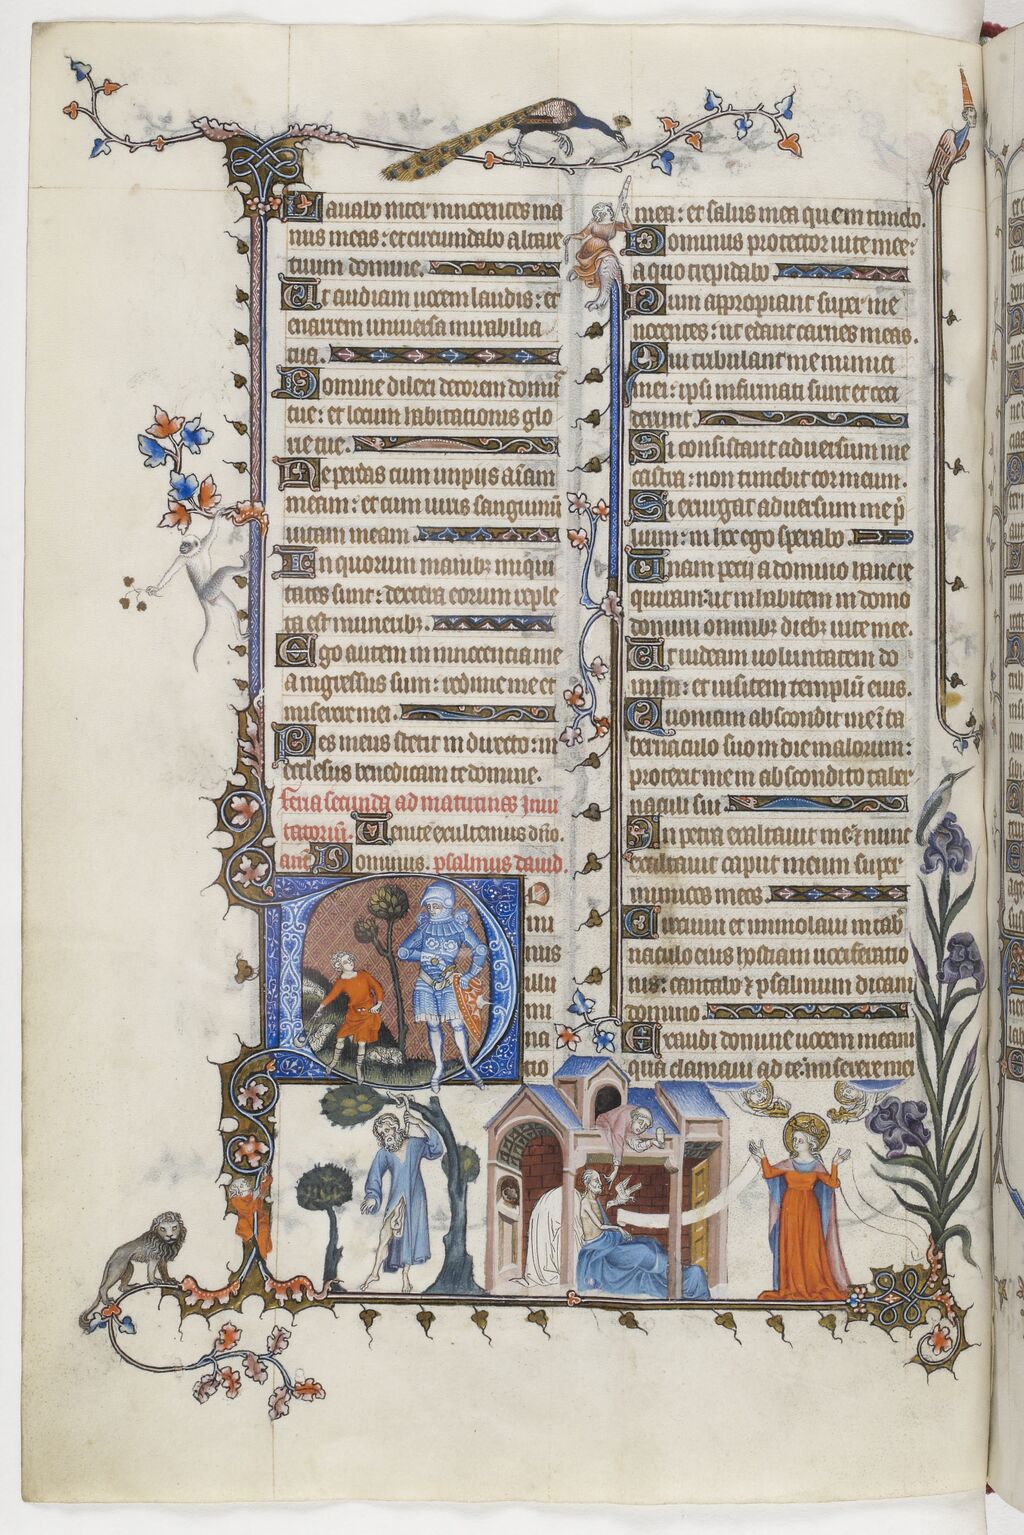 Lauabo inter innocentes ma
nus meas: et circumdabo altare
tuum domine.
Ut audiam uocem laudis: et
enarrem uniuersa mirabilia
tua.
Domine dilexi decorem domus
tue: et locum habitationis glo
rie tue.
Ne perdas cum impiis aīam
meam: et cum uiris sanguinū
uitam meam.
In quorum manibꝫ iniqui
tates sunt: dextera eorum reple
ta est muneribꝫ.
Ego autem in innocencia me
a ingressus sum: redime me et
miserere mei.
Pes meus stetit in directo: in
ecclesiis benedicam te domine.
feria secunda ad matutinas Inui
tatoriū. Uenite exultemus dño.
anī Dominus. psalmus dauid.
D
mi
nus
illu
mi
na
tio
mea: et salus mea quem timebo.
Dominus protector uite mee:
a quo trepidabo.
Dum appropiant super me
nocentes: ut edant carnes meas.
Qui tribulant me inimici
mei: ipsi infirmati sunt et ceci
derunt.
Si consistant aduersum me
castra: non timebit cor meum.
Si exurgat aduersum me p̄
lium: in hoc ego sperabo.
Unam petii a domino hanc re
quiram: ut inhabitem in domo
domini omnibꝫ diebꝫ uite mee.
Ut uideam uoluntatem do
mini: et uisitem templū eius.
Quoniam abscondit me ī ta
bernaculo suo in die malorum:
protexit me in abscondito taber
naculi sui.
In petra exaltauit me: ⁊ nunc
exaltauit caput meum super
inimicos meos.
Circuiui et immolaui in tab̄
naculo eius hostiam uociferatio
nis: cantabo ⁊ psalmum dicam
domino.
Exaudi domine uocem meam
qua clamaui ad te: miserere mei